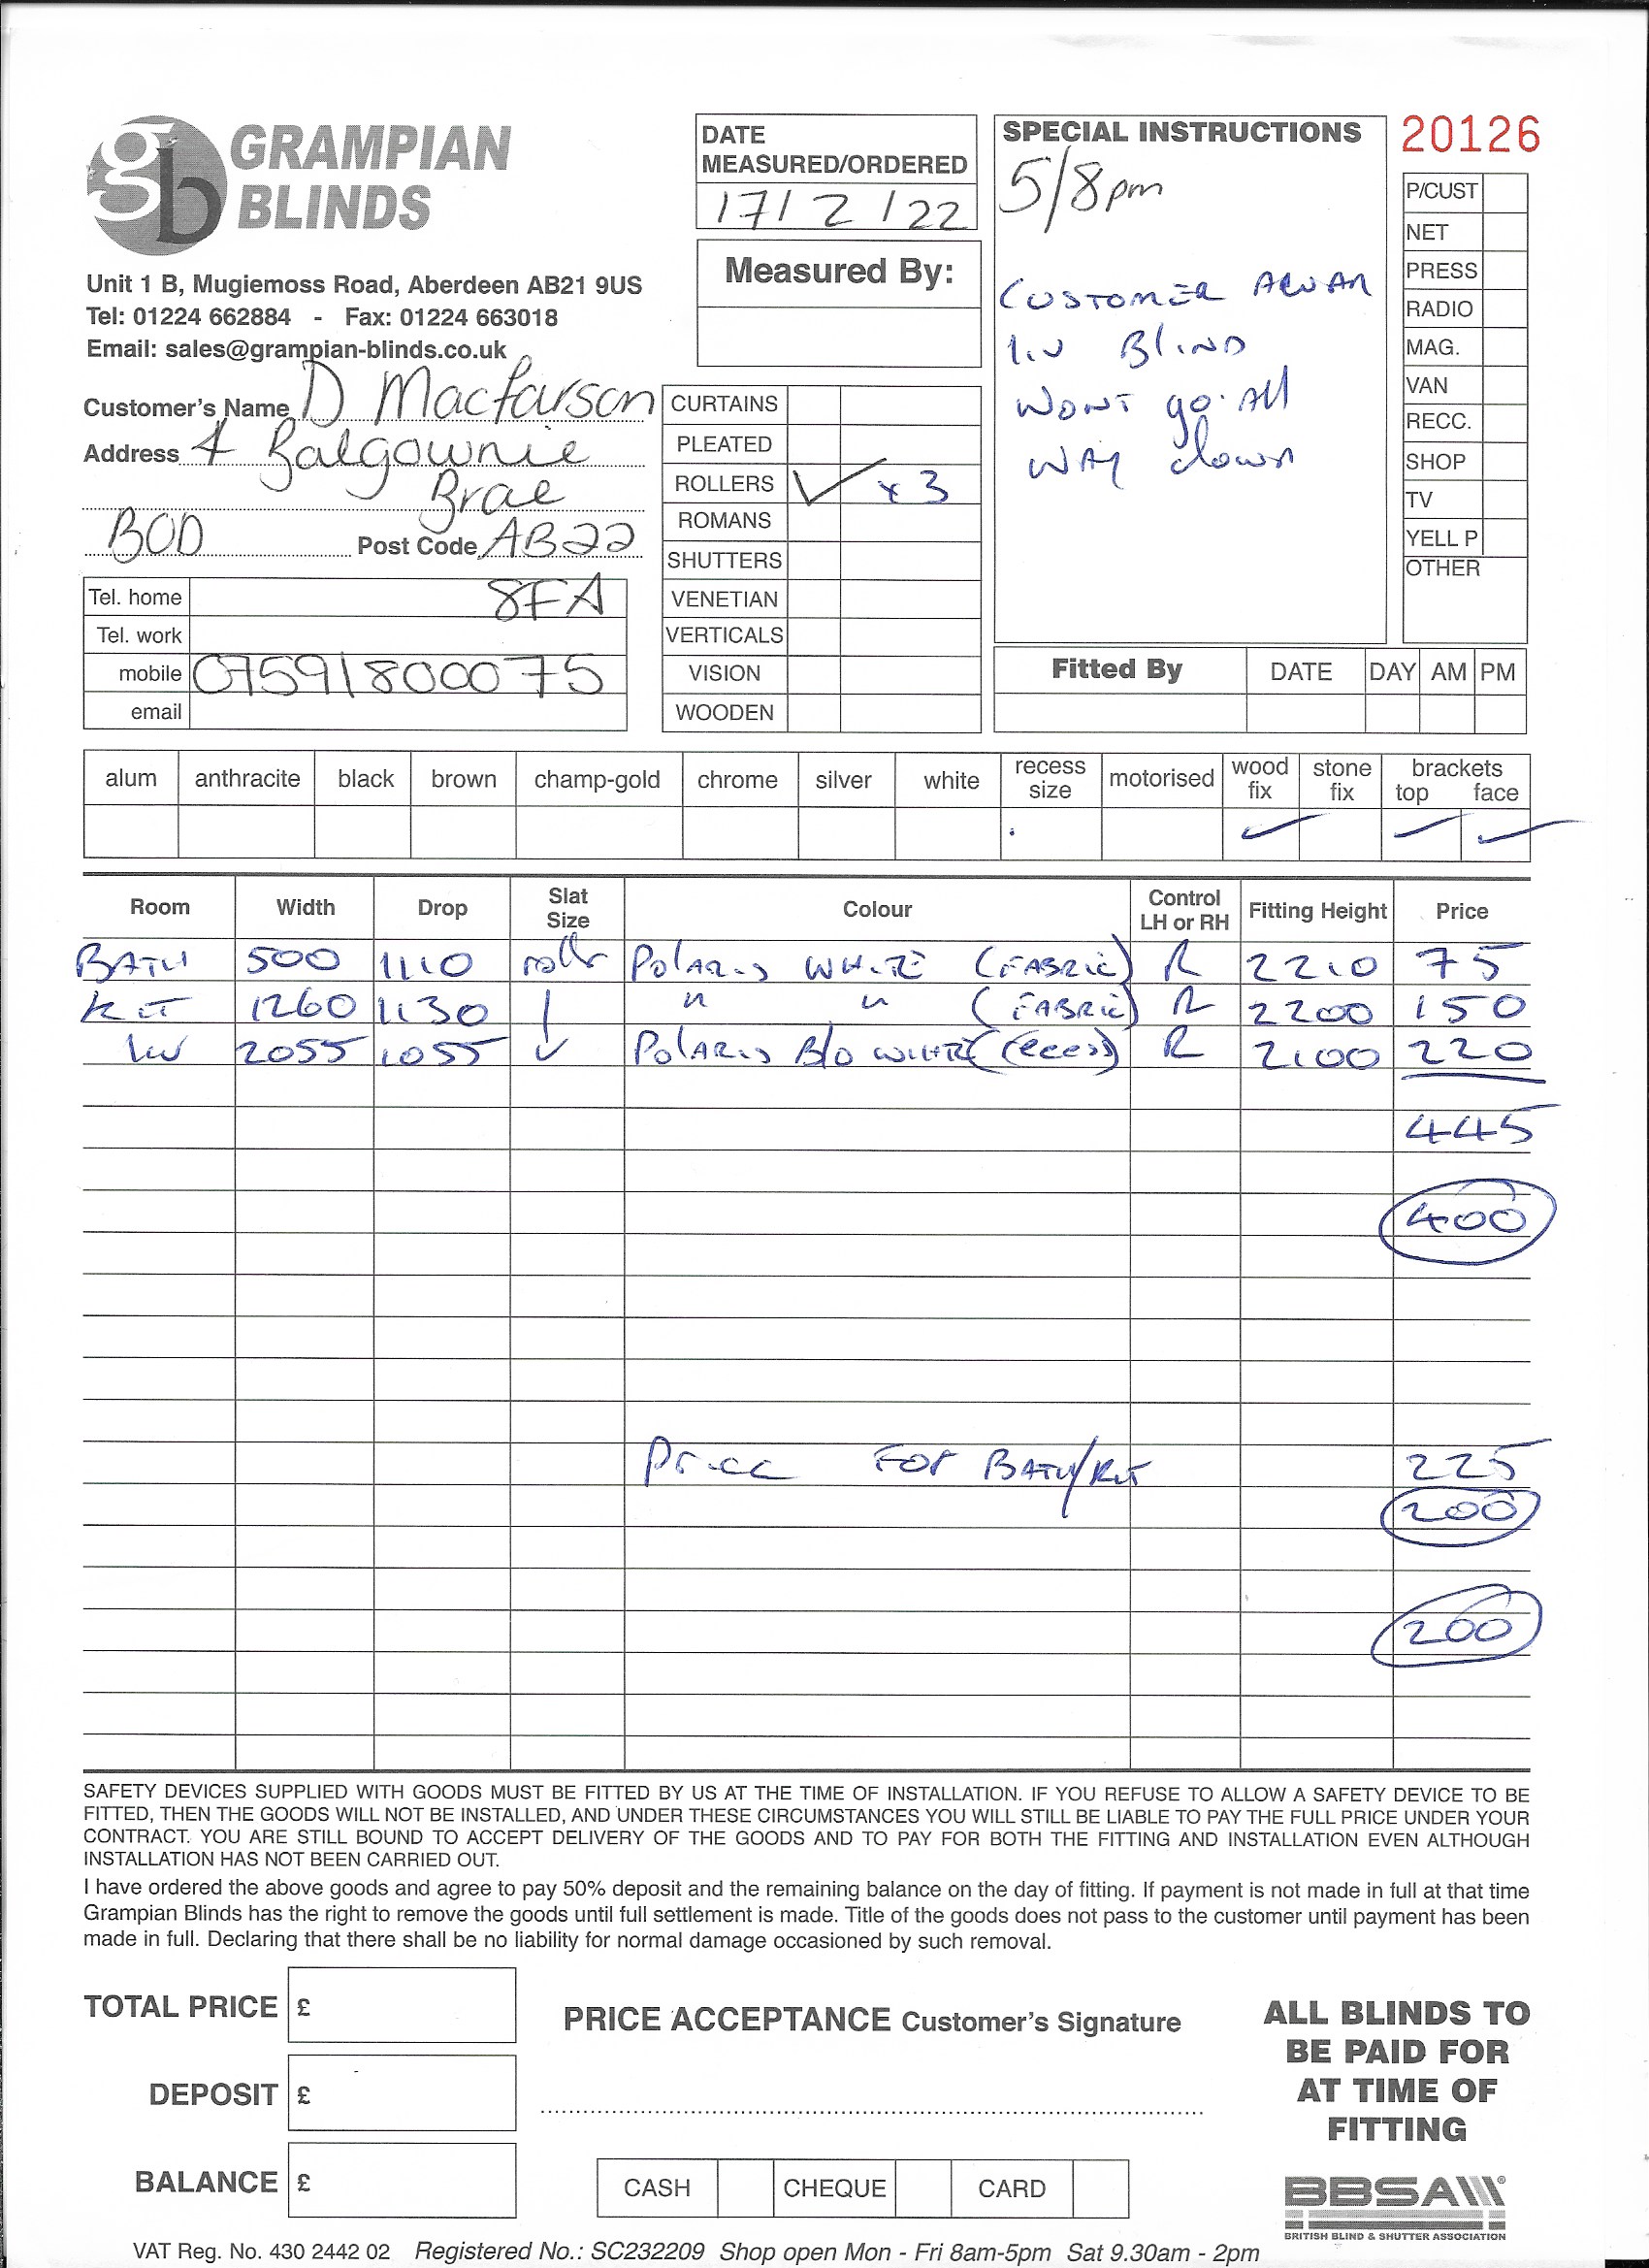 GRAMPIAN
BLINDS
Unit 1 B, Mugiemoss Road, Aberdeen AB21 9US
Tel: 01224 662884 - Fax: 01224 663018
Email: sales@grampian-blinds.co.uk
Customer's Name D Macfarson
Address 4 Balgownie
Brae
BOD Post Code AB22
8FA
Tel. home
Tel. work
mobile 07591800075
email
DATE
MEASURED/ORDERED
17/2/22
Measured By:
CURTAINS
PLEATED
ROLLERS ✓ x3
ROMANS
SHUTTERS
VENETIAN
VERTICALS
VISION
WOODEN
SPECIAL INSTRUCTIONS
5/8pm
CUSTOMER AWAR
LIV BLIND
WONT go All
WAY down
20126
P/CUST
NET
PRESS
RADIO
MAG.
VAN
RECC.
SHOP
TV
YELL P
OTHER
Fitted By DATE DAY AM PM
alum anthracite black brown champ-gold chrome silver white recess size motorised wood fix stone fix brackets top face
✓ ✓ ✓
Room Width Drop Slat Size Colour Control LH or RH Fitting Height Price
BATH 500 1110 rollr POLARIS WHITE (FABRIC) R 2210 75
KIT 1260 1130 " " (FABRIC) R 2200 150
LIV 2055 1055 POLARIS B/O WHITE (recess) R 2100 220
445
400
Price FOR BATH/KIT 225
200
200
SAFETY DEVICES SUPPLIED WITH GOODS MUST BE FITTED BY US AT THE TIME OF INSTALLATION. IF YOU REFUSE TO ALLOW A SAFETY DEVICE TO BE
FITTED, THEN THE GOODS WILL NOT BE INSTALLED, AND UNDER THESE CIRCUMSTANCES YOU WILL STILL BE LIABLE TO PAY THE FULL PRICE UNDER YOUR
CONTRACT. YOU ARE STILL BOUND TO ACCEPT DELIVERY OF THE GOODS AND TO PAY FOR BOTH THE FITTING AND INSTALLATION EVEN ALTHOUGH
INSTALLATION HAS NOT BEEN CARRIED OUT.
I have ordered the above goods and agree to pay 50% deposit and the remaining balance on the day of fitting. If payment is not made in full at that time
Grampian Blinds has the right to remove the goods until full settlement is made. Title of the goods does not pass to the customer until payment has been
made in full. Declaring that there shall be no liability for normal damage occasioned by such removal.
TOTAL PRICE £
DEPOSIT £
BALANCE £
PRICE ACCEPTANCE Customer's Signature
CASH CHEQUE CARD
ALL BLINDS TO
BE PAID FOR
AT TIME OF
FITTING
BBSA
BRITISH BLIND & SHUTTER ASSOCIATION
VAT Reg. No. 430 2442 02 Registered No.: SC232209 Shop open Mon - Fri 8am-5pm Sat 9.30am - 2pm